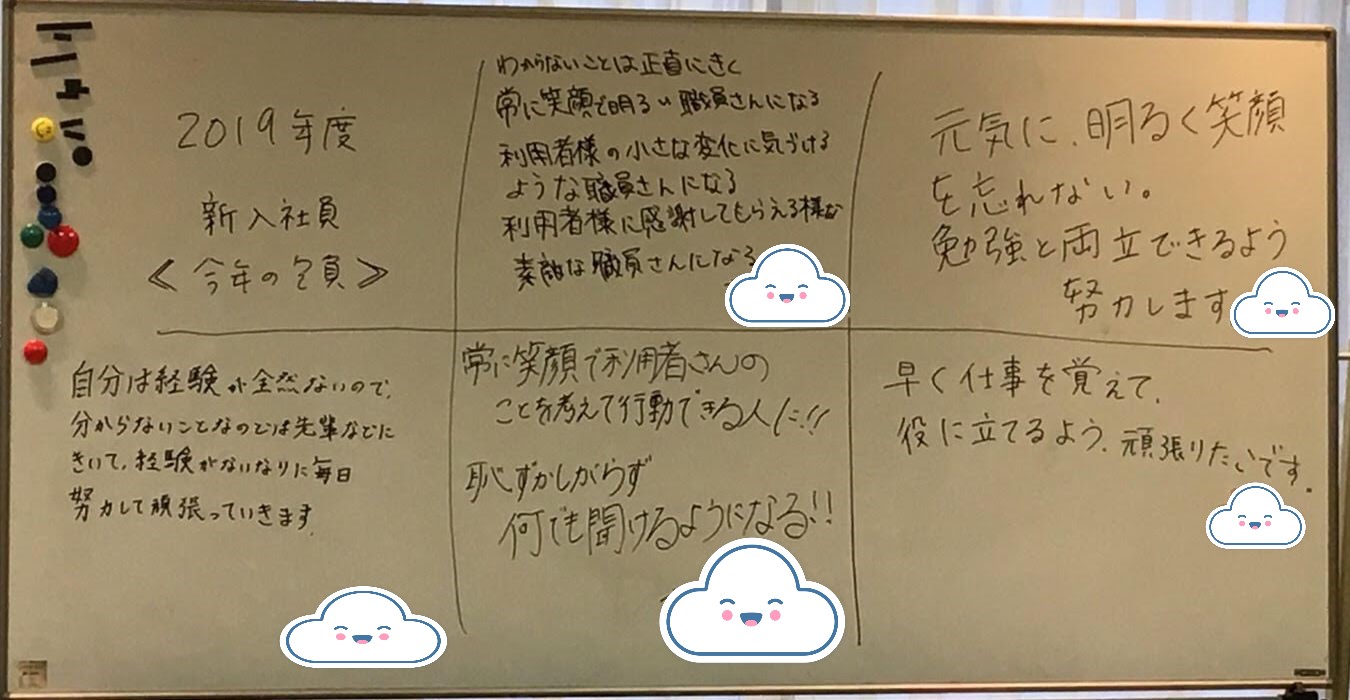 2019年度
新入社員
≪今年の
わからないことは正直にきく
常に笑顔で明るい職員さんになる
利用者様の小さな変化に気づける
ような職員さんになる
利用者様に感謝してもらえる様な
素敵な職員さんになる
元気に、明るく笑顔
を忘れない。
勉強と両立できるよう
努力します
自分は経験が全然ないので、
分からないことなのでは先輩などに
きいて、経験がないなりに毎日
努力して頑張っていきます。
常に笑顔で利用者さんの
ことを考えて行動できる人に!!
恥ずかしがらず
何でも聞けるようになる!!
早く仕事を覚えて、
役に立てるよう、頑張りたいです。